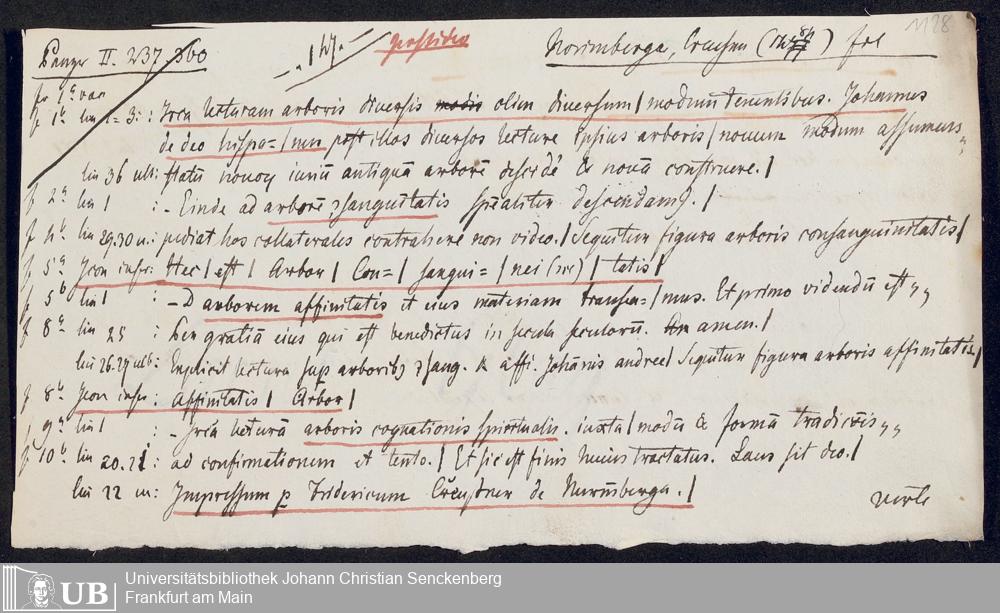 1128
Panzer II. 237 360 147. Postidea Norimberga, Creusner (14) fol
f 1ª vac
f 1b lin 1-3: Circa lecturam arboris diversis modis olim diversum / modum tenentibus. Johannes
de deo hispa= / nus post illos diversos lecture ipsius arboris / novum modum assumens
lin 36 ult: statū novoꝝ iuriū antiquā arborē &c novā construere. /
f 2ª lin 1 : - Einde ad arborē ꝯsanguitatis spēaliter descendam9. /
f 4b lin 29.30 u.: pediat hos collaterales contrahere non video. / Sequitur figura arboris consanguinitatis /
f 5ª Icon infr: Hec / est / Arbor / Con= / sangui= / nei (sic) / tatis /
f 5b lin 1 : - D arborem affinitatis et eius materiam transea= / mus. Et primo videndū est „ „
f 8ª lin 25 : Per gratiā eius qui est benedictus in secula seculorū. amen. /
lin 26.27 ult: Explicit lectura sup arborib9 ꝯsang. & affi. Johānis andree / Sequitur figura arboris affinitatis /
f 8b Icon infr: Affinitatis / Arbor /
f 9ª lin 1 : - Circa lecturā arboris cognationis spiritualis. iuxta / modū & formā „ „
f 10b lin 20.21 : ad confirmationem et tento. / Et sic est finis huius tractatus. Laus sit deo. /
lin 22 u: Impressum p Fridericum Creusner de Nurmberga. /
verte
UB Universitätsbibliothek Johann Christian Senckenberg
Frankfurt am Main